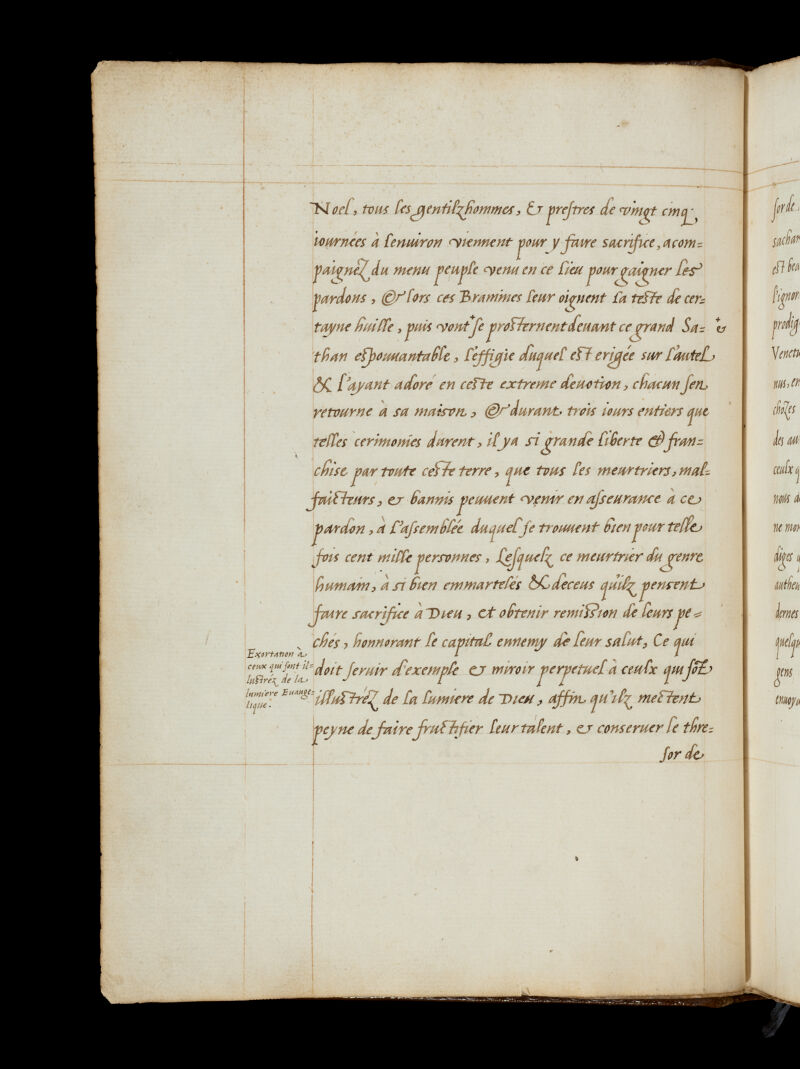 Noel, tous les gentilzhommes, & prestres de vingt cinq
iournées à lenuiron viennent pour y faire sacrifice, acom=
paignéz du menu peuple venu en ce lieu pour gaigner les
pardons, & lors ces Bramines leur oignent la teste de cer=
tayne huille, puis vont se prosternent deuant ce grand Sa= &
than espouuantable, l'effigie duquel est erigée sur l'autel
& l'ayant adoré en ceste extreme deuotion, chacun sen
retourne à sa maison, & durant trois iours entiers que
telles cerimonies durent, il ya si grande liberte & fran=
chise par toute ceste terre, que tous les meurtriers, mal=
faicteurs, & bannis peuuent venir en asseurance à ce
pardon, à l'assemblée duquel se trouuent bien pour telle
fois cent mille personnes, lesquelz ce meurtrier du genre
humain, à si bien emmartelés & deceus qu'ilz pensent
faire sacrifice à Dieu, et obtenir remission de leurs pe=
chés, honnorant le capital ennemy de leur salut, Ce qui
doit seruir d'exemple & miroir perpetuel à ceulx qui sõt
illustréz de la lumiere de Dieu, affin qu'ilz mettent
peyne de faire fructifier leur talent, & conseruer le thre=
sor de
Exortation à
ceux qui sont il=
lustréz de la
lumiere Euange=
lique.
sor de
sachan
est bea
l'ignor
prodig
Venetu
nus, en
chozes
des au
ceulx q
nous a
ne mon
diges
authen
dernes
quelqu
gens
enuoyé